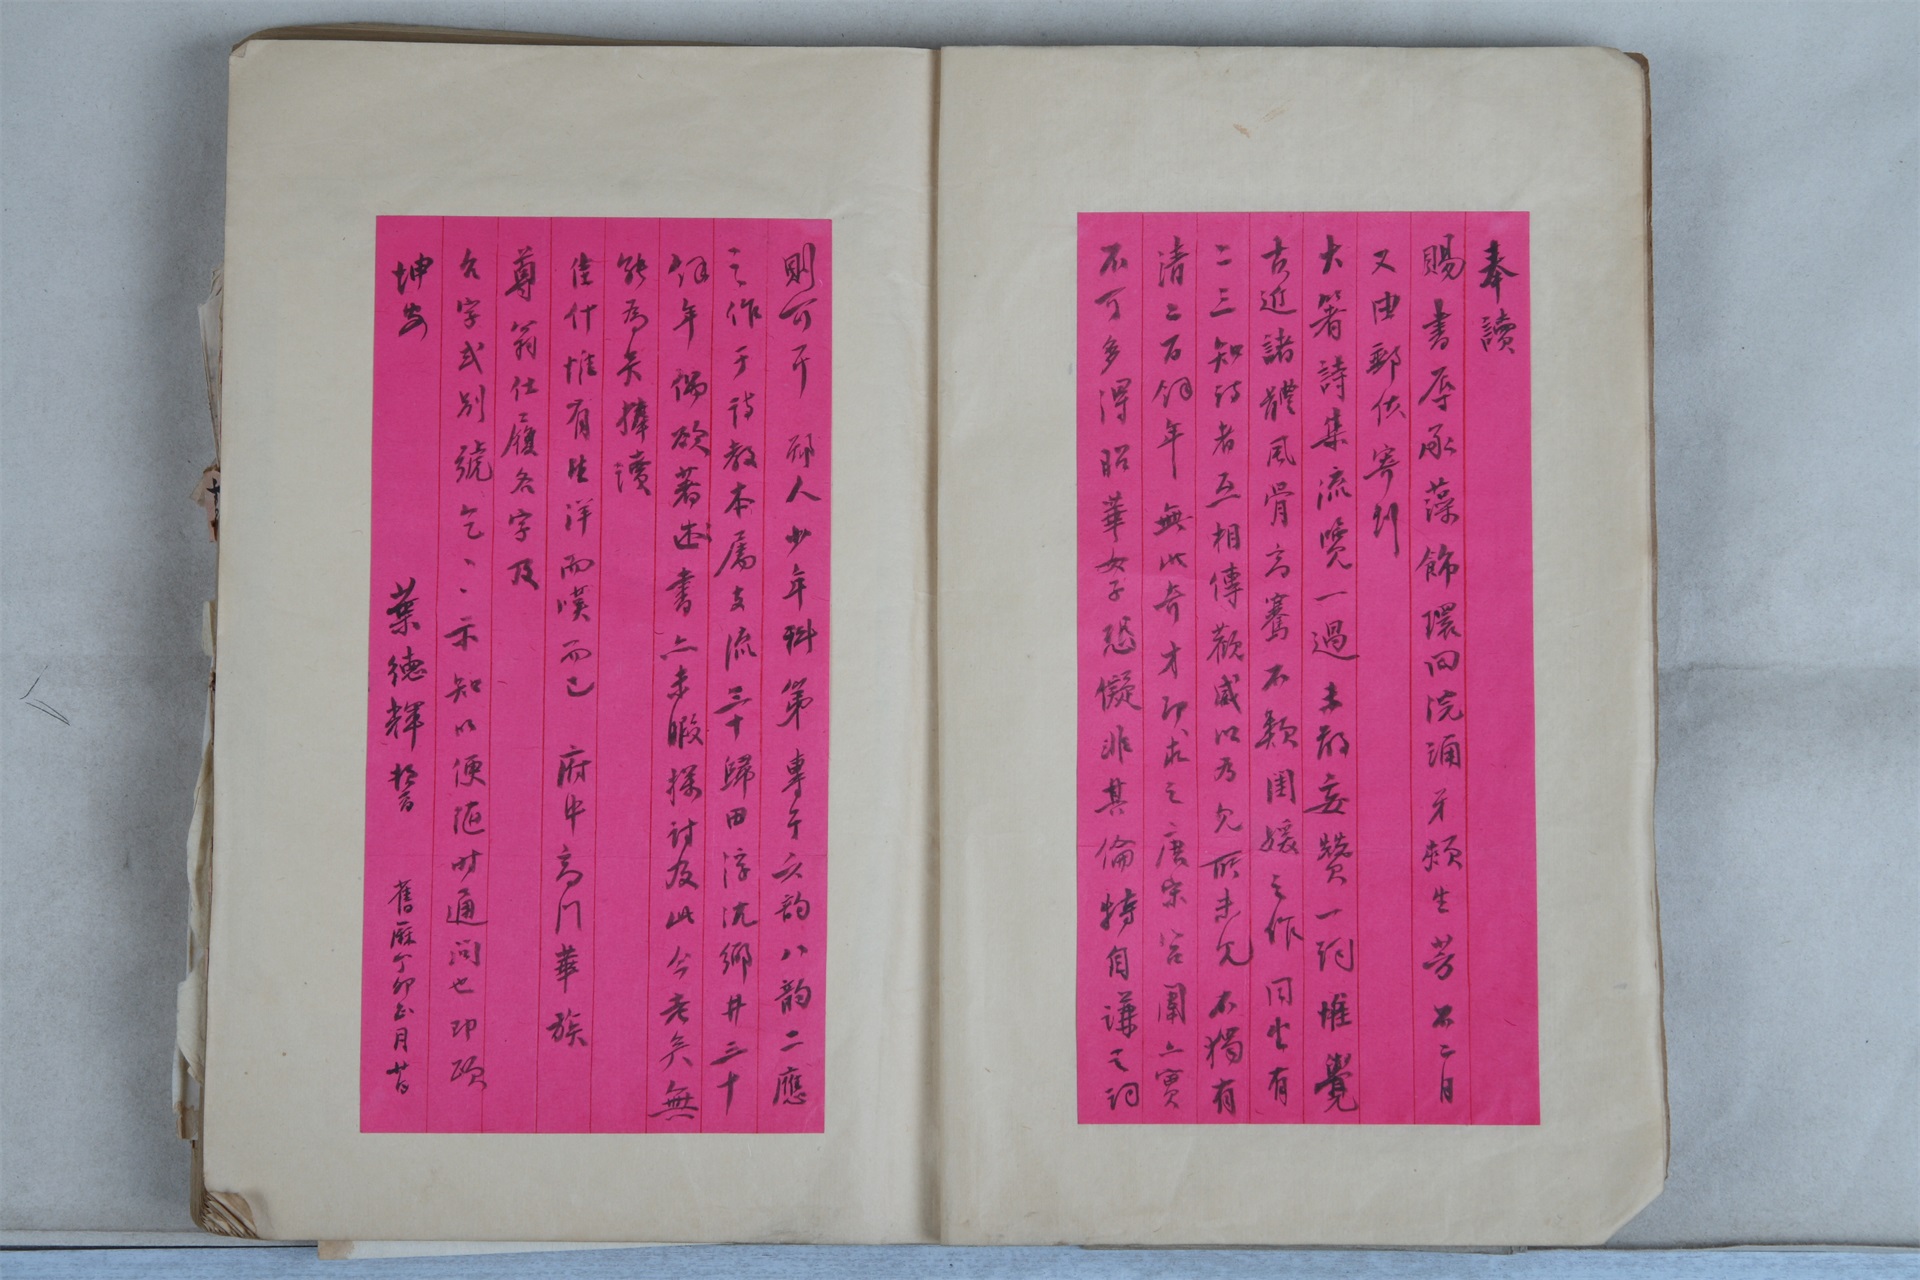 奉讀
賜書辱承藻飾環回浣誦牙頰生芳不二月
又由郵使寄到
大著詩集流覽一過未敢妄贊一詞惟覺
古近諸體風骨高騫不類閨媛之作同坐有
二三知詩者互相傳觀咸以為見所未見不獨有
清二百餘年無此奇才即求之唐宋宮闈亦實
不可多得昭華女子恐儗非其倫特自謙之詞
則可耳 鄙人少年科第專于六韵八韵二應
之作于詩教本屬支流三十歸田浮沈鄉井三十
餘年偶欲著述書亦未暇探討及此今老矣無
能為矣捧讀
佳什惟有望洋而嘆而已 府中高門華族
尊翁仕履名字及
台字或別號乞乞示知以便随时通问也即頌
坤安
葉德輝拜啓 舊厤丁卯正月廿